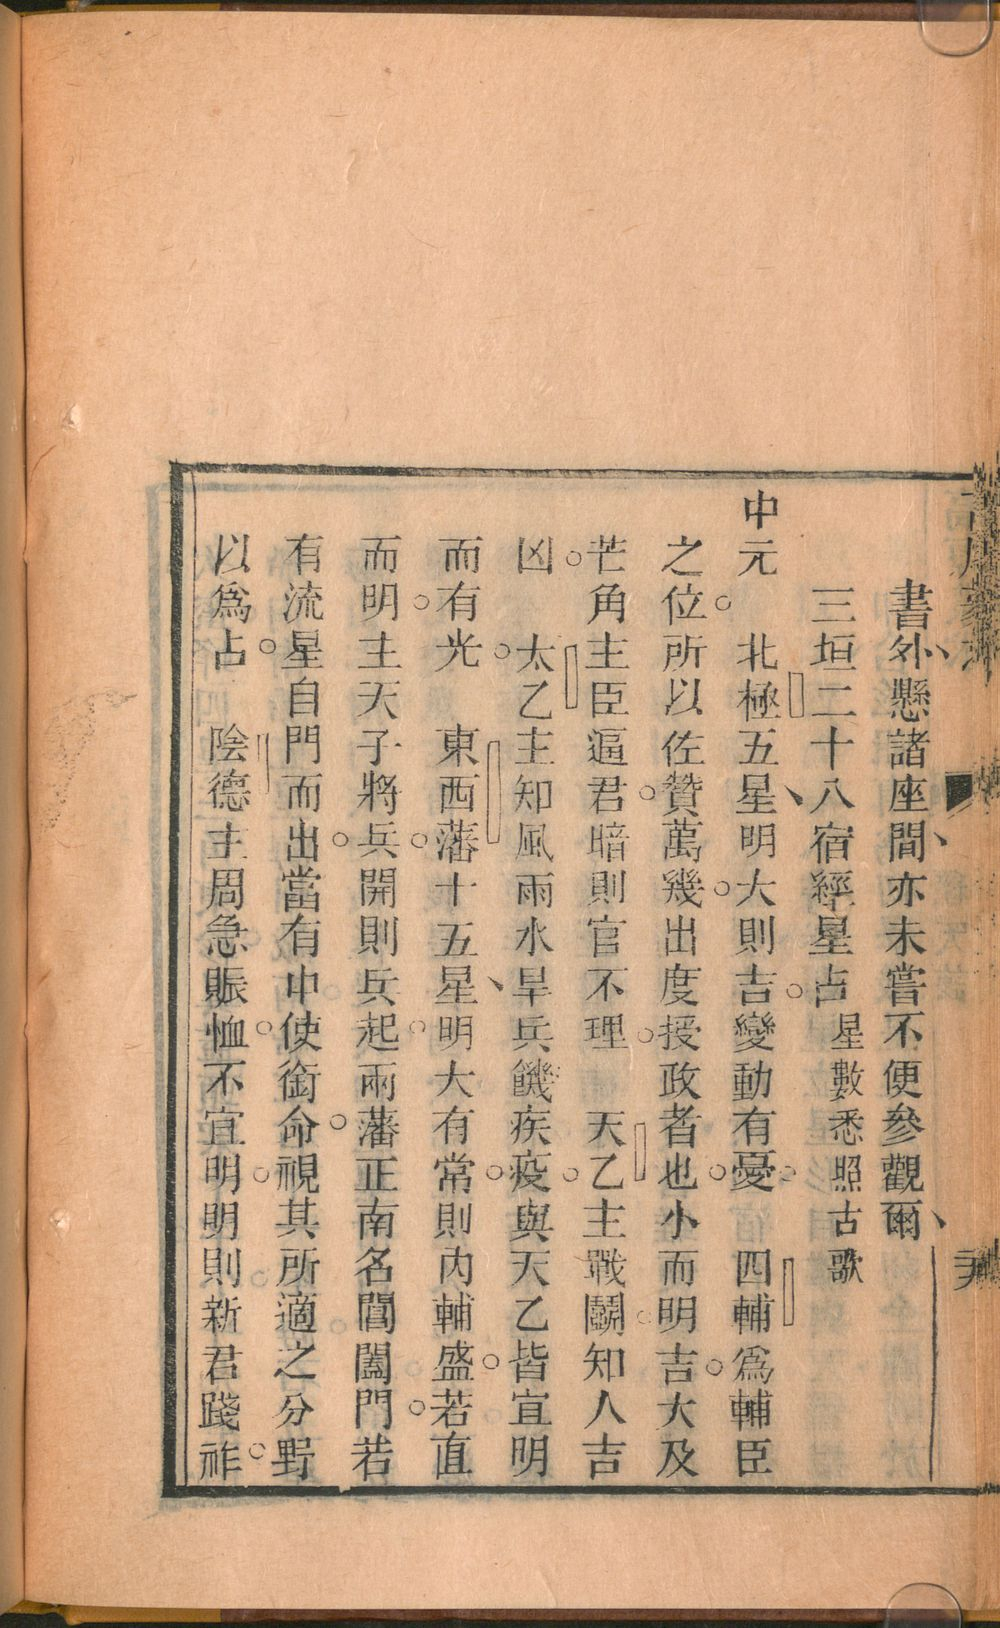 書外懸諸座間亦未嘗不便參觀爾
三垣二十八宿經星占 星數悉照古歌
中元 北極五星明大則吉變動有憂 四輔爲輔臣
之位所以佐贊萬幾出度授政者也小而明吉大及
芒角主臣逼君暗則官不理 天乙主戰鬭知人吉
凶 太乙主知風雨水旱兵饑疾疫與天乙皆宜明
而有光 東西藩十五星明大有常則內輔盛若直
而明主天子將兵開則兵起兩藩正南名閶闔門若
有流星自門而出當有中使銜命視其所適之分野
以爲占 陰德主周急賑恤不宜明明則新君踐祚